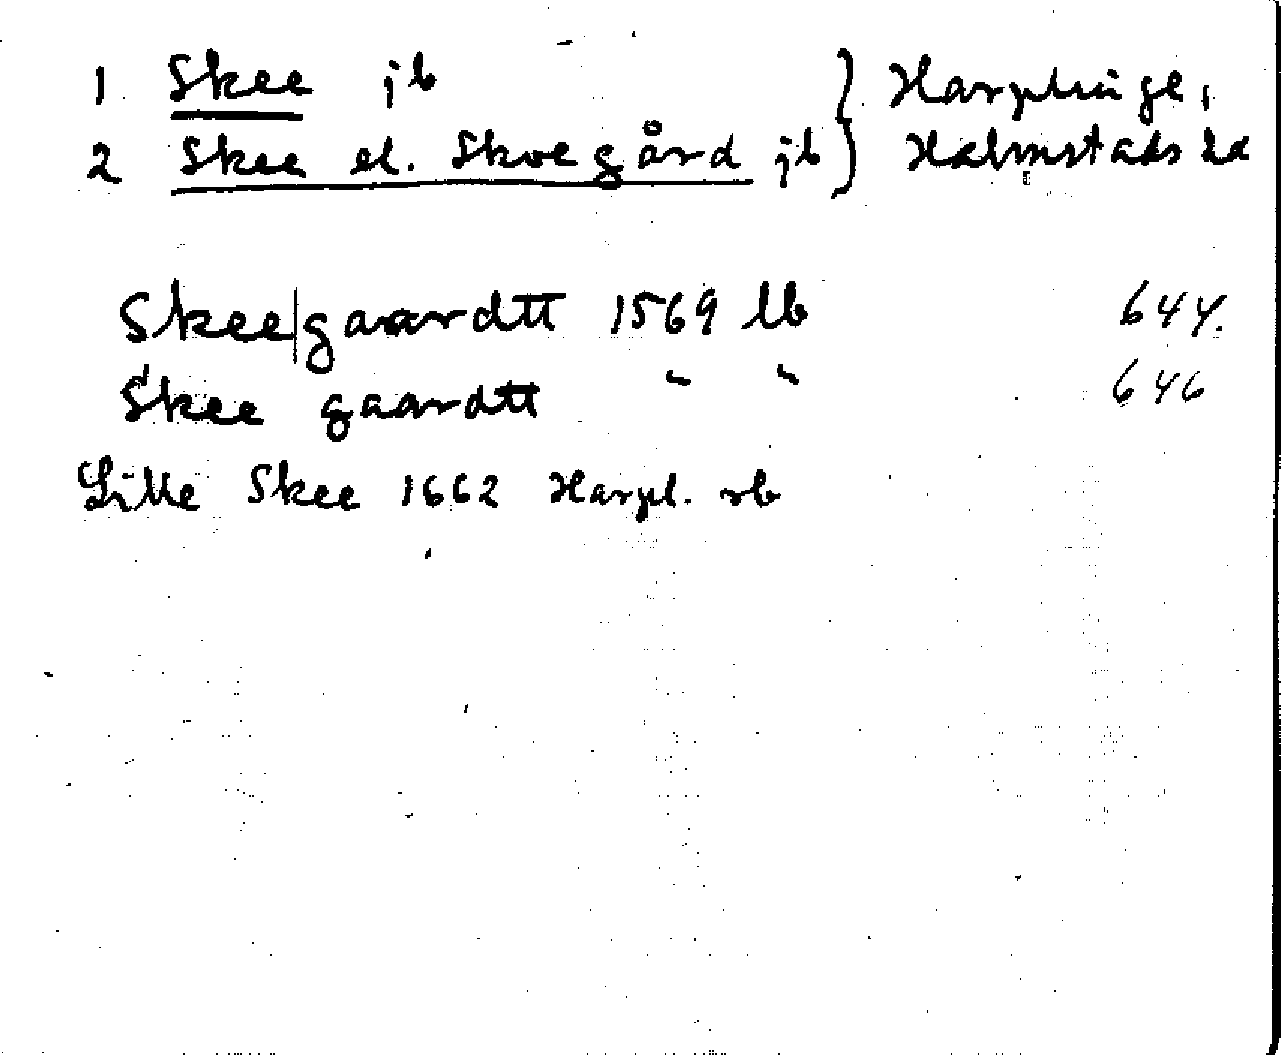 1 Skee jb } Harplinge,
2 Skee el. Skoegård jb } Halmstads hd
Skee|gaardtt 1569 lb 644.
Skee gaardtt " " 646
Lille Skee 1662 Harpl. rb